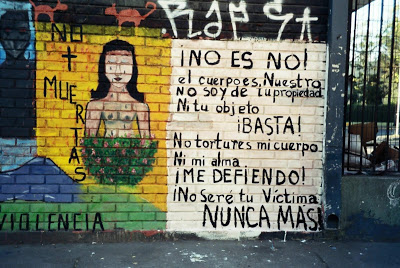 NO + MUERTAS
VIOLENCIA
¡NO ES NO!
el cuerpo es, Nuestro
No soy de tu propiedad
Ni tu objeto
¡BASTA!
No tortures mi cuerpo
Ni mi alma
¡ME DEFIENDO!
¡No Seré tu Víctima
NUNCA MÁS!